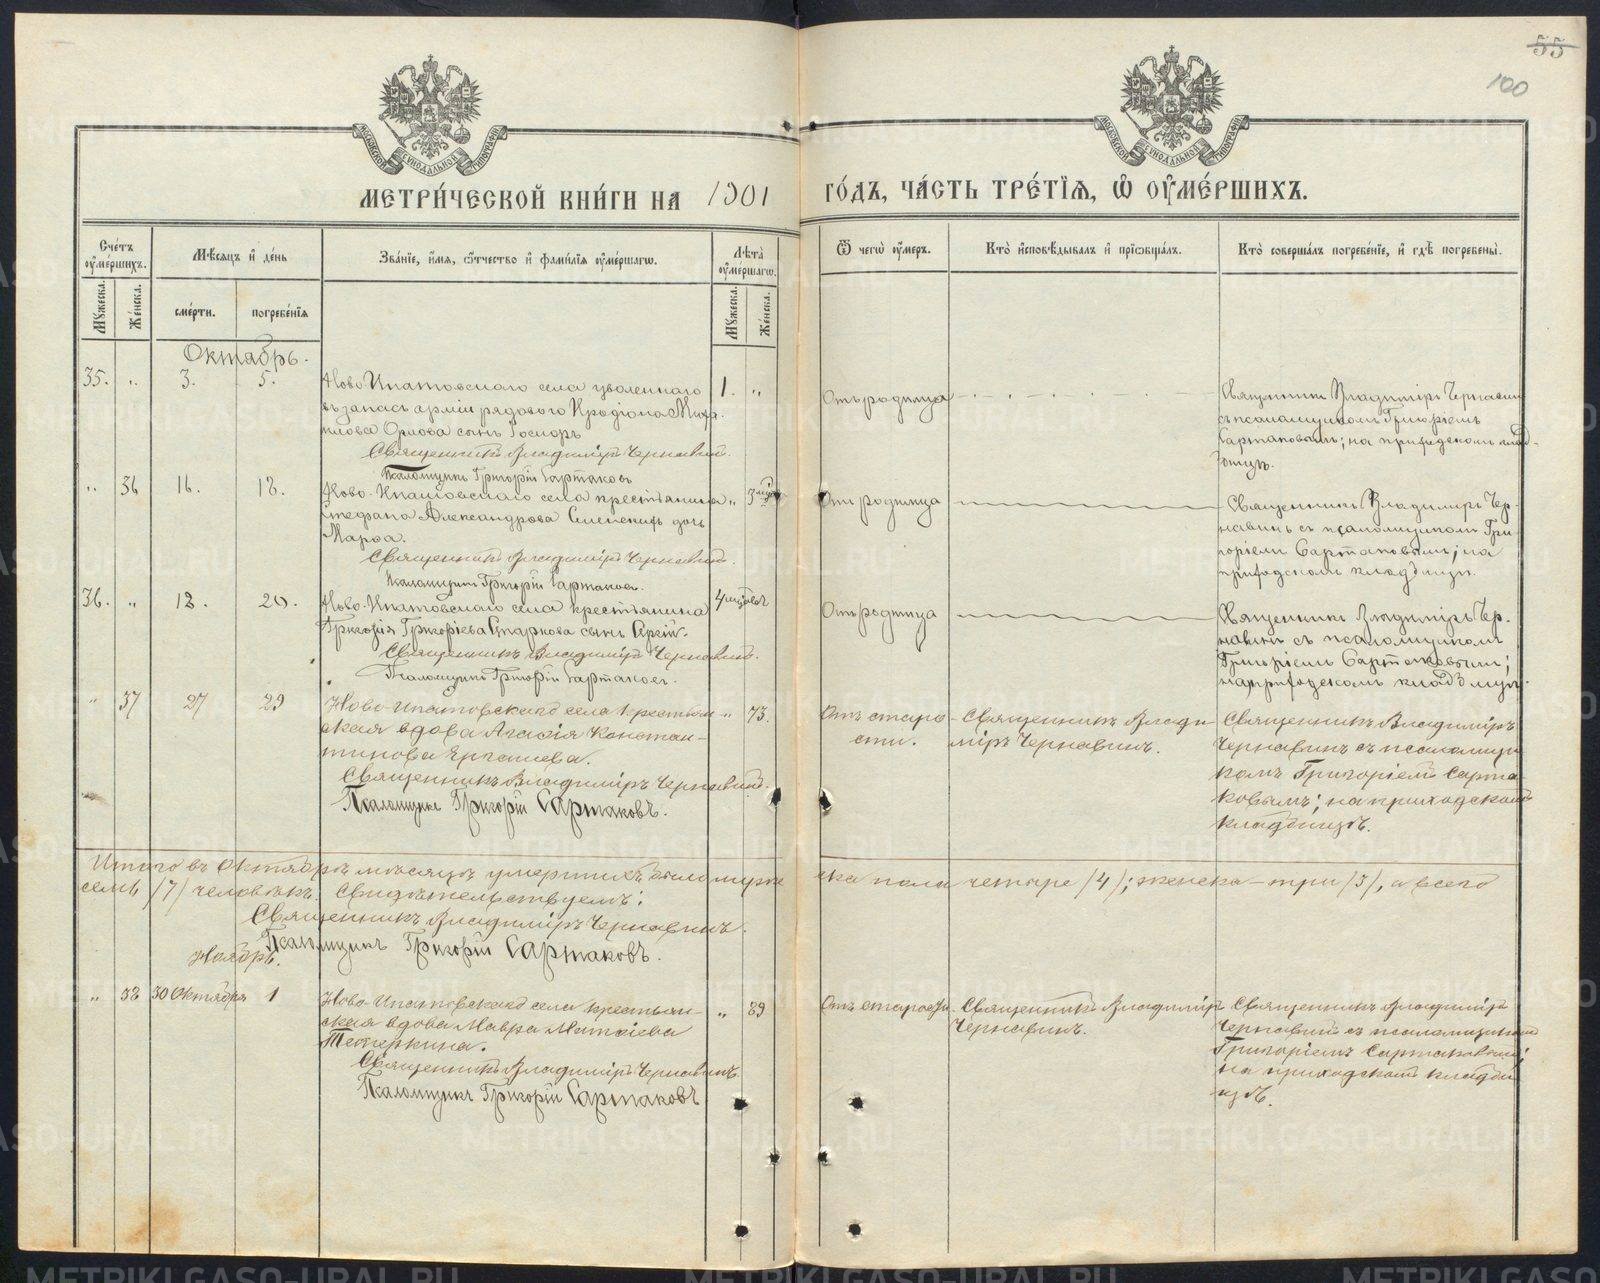 55
100
МОСКОВСКОЙ СѴНОДАЛЬНОЙ ТИПОГРАФІИ
МОСКОВСКОЙ СѴНОДАЛЬНОЙ ТИПОГРАФІИ
МЕТРИ́ЧЕСКОЙ КНИ́ГИ НА 1901 ГО́ДЪ, ЧА́СТЬ ТРЕ́ТІѦ, Ѡ҆ ОУ҆МЕ́РШИХЪ.
Сче́тъ оу҆ме́ршихъ.
Мꙋ́жеска.
Же́нска.
Мѣ́сѧцъ и҆ де́нь
сме́рти.
погребе́нїѧ
Зва́нїе, и҆́мѧ, ѻ҆́тчество и҆ фами́лїѧ оу҆ме́ршагѡ.
Лѣ́та оу҆ме́ршагѡ.
Мꙋ́жеска.
Же́нска.
Ѿ чегѡ̀ оу҆́меръ.
Кто̀ и҆сповѣ́дывалъ и҆ прїѡбща́лъ.
Кто̀ соверша́лъ погребе́нїе, и҆ гдѣ̀ погребены̀.
Октябрь.
35. „ 3. 5.
Ново-Ипатовскаго села уволеннаго
въ запасъ арміи рядового Иродіона Миха
илова Орлова сынъ
Священникъ Владиміръ Чернавинъ.
Псаломщикъ Григорій Сартаковъ
1. „
Отъ родимца
Священникъ Владиміръ Чернавин
съ псаломщикомъ Григоріемъ
Сартаковымъ; на приходскомъ клад-
бищѣ.
„ 36 16. 18.
Ново-Ипатовскаго села крестьянина
Стефана Александрова дочь
Марѳа.
Священникъ Владиміръ Чернавинъ.
Псаломщикъ Григорій Сартаковъ.
„ 3
Отъ родимца
Священникъ Владиміръ Чер-
навинъ съ псаломщикомъ Гри-
горіемъ Сартаковымъ; на
приходскомъ кладбищѣ.
36. „ 18. 20.
Ново-Ипатовскаго села крестьянина
Григорія Григоріева Старкова сынъ
Священникъ Владиміръ Чернавинъ.
Псаломщикъ Григорій Сартаковъ.
4
Отъ родимца
Священникъ Владиміръ Чер-
навинъ съ псаломщикомъ
Григоріемъ Сартаковымъ;
на приходскомъ кладбищѣ.
„ 37 27 29
Ново-Ипатовскаго села крестьян-
ская вдова Агаѳія Констан-
тинова
Священникъ Владиміръ Чернавинъ.
Псаломщикъ Григорій Сартаковъ.
„ 73.
Отъ старо
сти.
Священникъ Влади
міръ Чернавинъ.
Священникъ Владиміръ
Чернавинъ съ псаломщи
комъ Григоріемъ Сарта-
ковымъ; на приходскомъ
кладбищѣ.
Итого въ Октябрѣ мѣсяцѣ умершихъ было мужеска пола четыре /4/; женска – три /3/, а всего
семь /7/ человѣкъ. Свидѣтельствуемъ:
Священникъ Владиміръ Чернавинъ.
Псаломщикъ Григорій Сартаковъ.
Ноябрь.
„ 38 30 Октября 1
Ново-Ипатовскаго села крестьян-
ская вдова Мавра Матѳіева
Священникъ Владиміръ Чернавинъ.
Псаломщикъ Григорій Сартаковъ
„ 89
Отъ старости
Священникъ Владиміръ
Чернавинъ.
Священникъ Владиміръ
Чернавинъ съ псаломщикомъ
Григоріемъ Сартаковымъ;
на приходскомъ кладби
щѣ.
METRIKI.GASO-URAL.RU